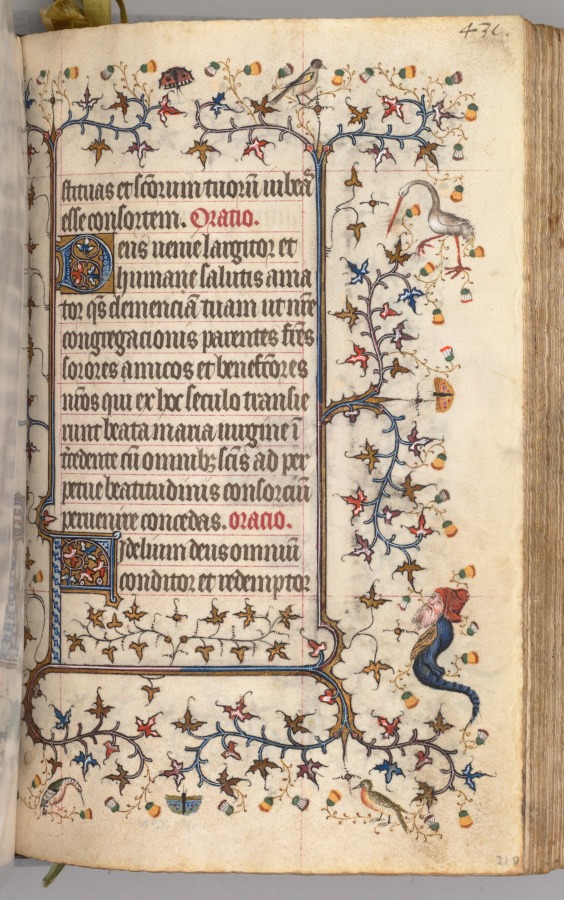 431.
stituas et scōrum tuorū iubeas
esse consortem. Oratio.
Deus uenie largitor et
humane salutis ama
tor qs clemenciā tuam ut nrē
congregacionis parentes frēs
sorores amicos et benefcōres
nrōs qui ex hoc seculo transie
runt beata maria uirgine ī
tercedente cū omnibꝫ scīs ad per
petue beatitudinis consorciū
peruenire concedas. oracio.
Fidelium deus omniū
conditor et redemptor
218